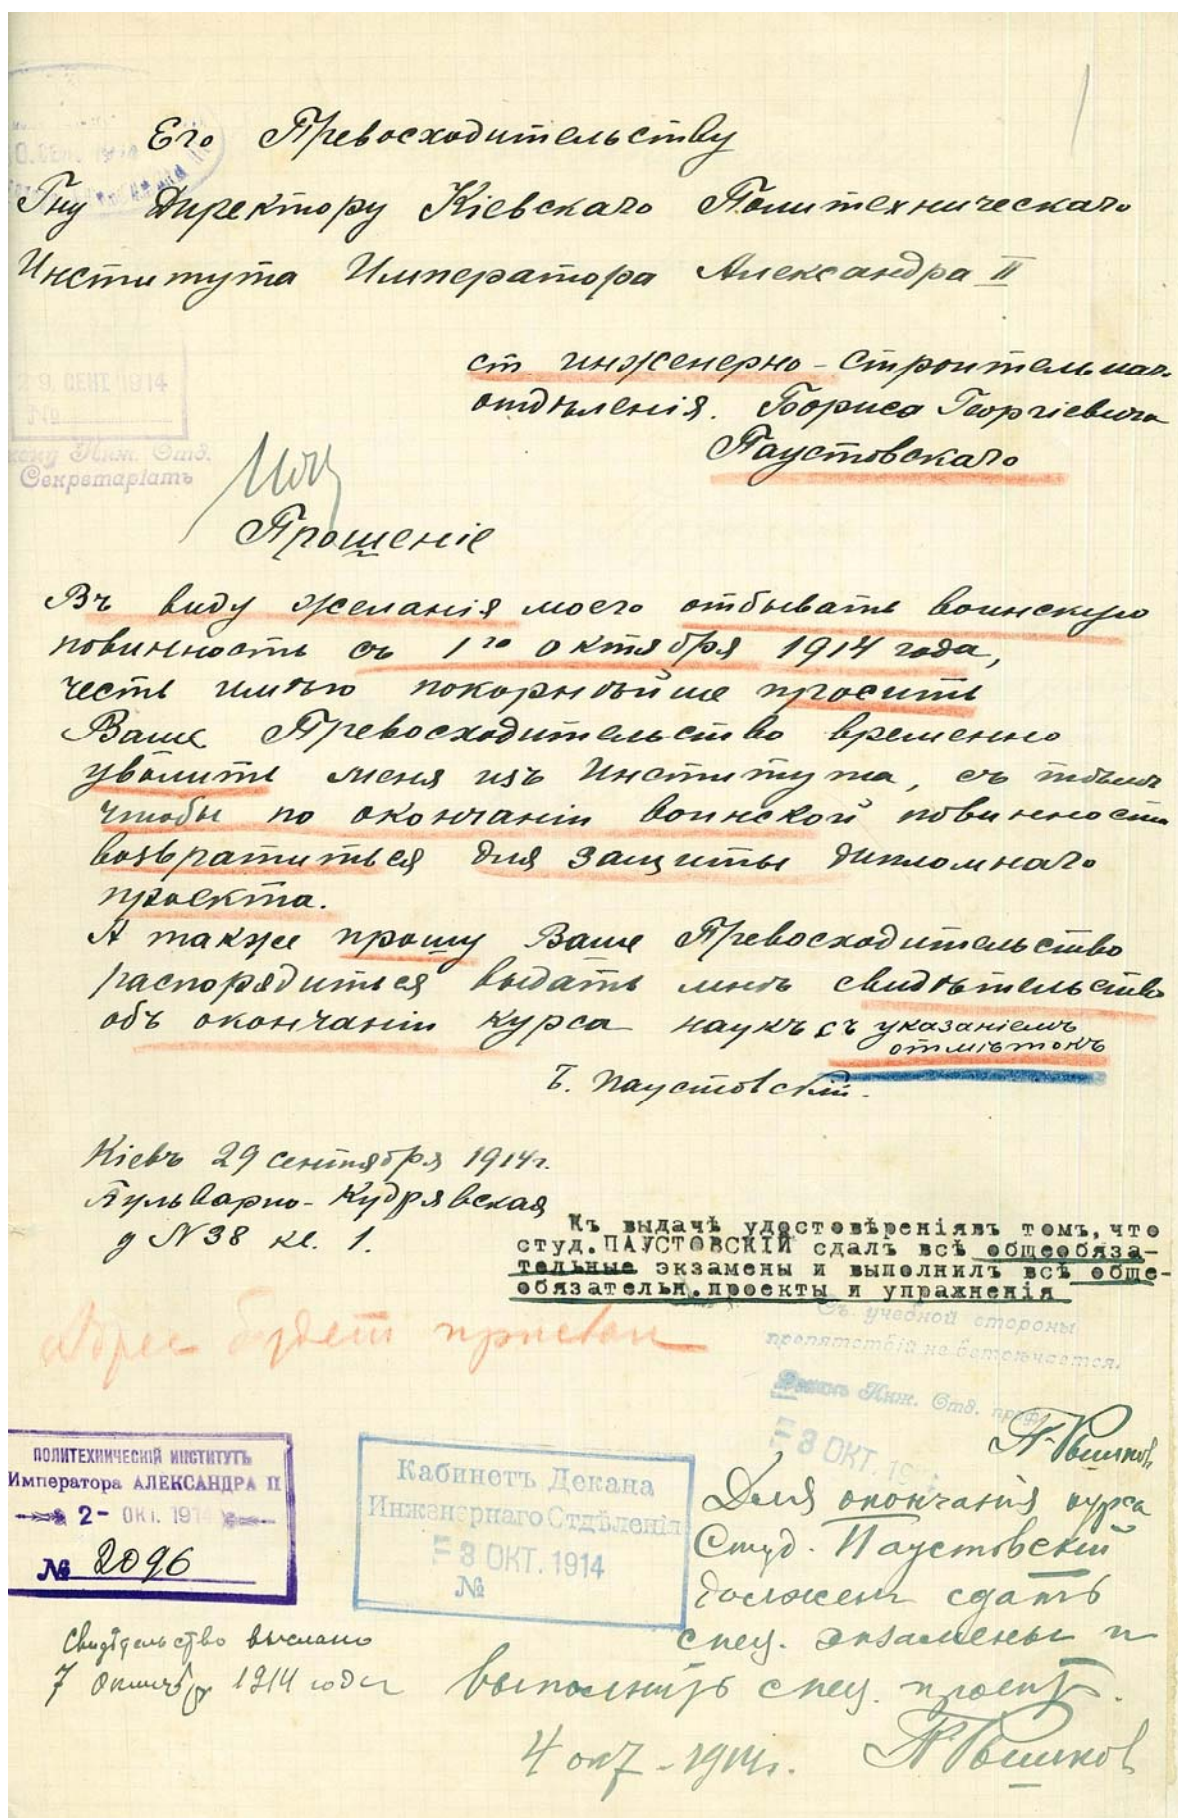 Его Превосходительству
Гну Директору Кіевскаго Политехническаго
Института Императора Александра II
ст инженерно-строительнаго
отдѣленія. Бориса Георгіевича
Паустовскаго
29. СЕНТ. 1914
№
Инж. Отд.
Секретаріатъ
Прошеніе
Въ виду желанія моего отбывать воинскую
повинность съ 1го октября 1914 года,
честь имѣю покорнѣйше просить
Ваше Превосходительство временно
уволить меня изъ Института, съ тѣмъ
чтобы по окончаніи воинской повинности
возвратиться для защиты дипломнаго
проекта.
А также прошу Ваше Превосходительство
распорядиться выдать мнѣ свидѣтельство
объ окончаніи курса наукъ съ указаніемъ
отмѣтокъ
Б. Паустовскій.
Кіевъ 29 сентября 1914г.
Бульварно-Кудрявская
д N38 кв. 1.
Къ выдачѣ удостовѣреніявъ томъ, что
студ. ПАУСТОВСКІЙ сдалъ всѣ общеобяза-
тельные экзамены и выполнилъ всѣ обще-
обязательн. проекты и упражненія
Съ учебной стороны
препятствій не встрѣчается.
Деканъ Инж. Отд. проф.
3 ОКТ.
Адрес будет прислан
ПОЛИТЕХНИЧЕСКІЙ ИНСТИТУТЪ
Императора АЛЕКСАНДРА II
2- ОКТ. 191
№ 2096
Кабинетъ Декана
Инженернаго Отдѣленія
3 ОКТ. 1914
№
Для окончанія курса
Студ. Паустовскій
должен сдать
спец. экзамены и
выполнить спец. проект.
4 окт. 1914г.
Свидѣтельство выслано
7 октября 1914 года